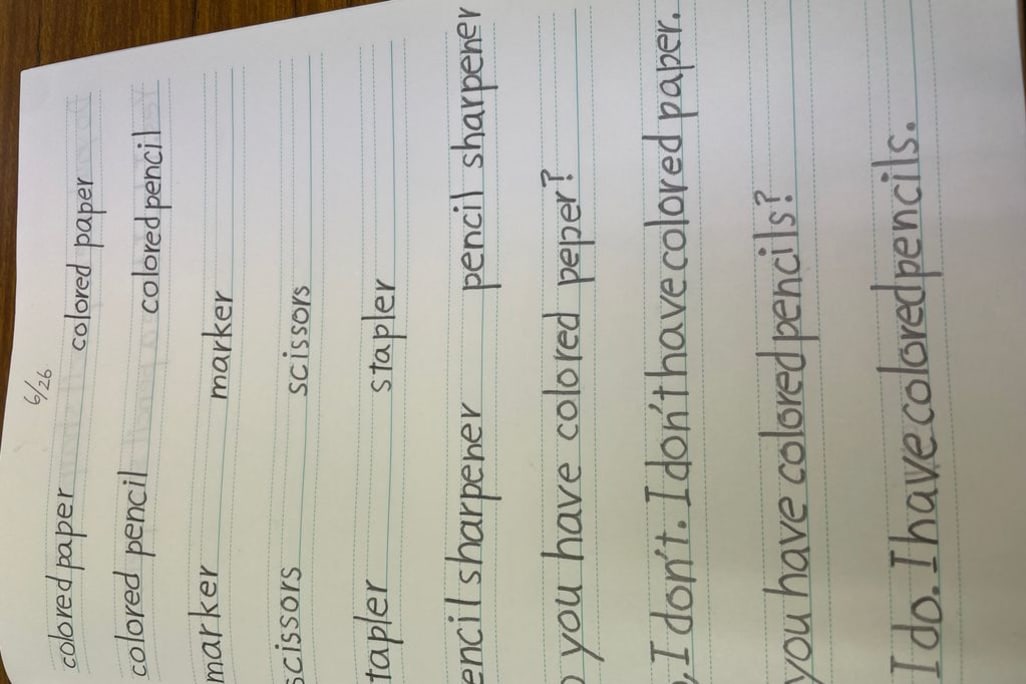 6/26
colored paper colored paper
colored pencil colored pencil
marker marker
scissors scissors
tapler stapler
encil sharpener pencil sharpener
you have colored peper?
, I don't. I don't have colored paper.
you have colored pencils?
I do. I have colored pencils.